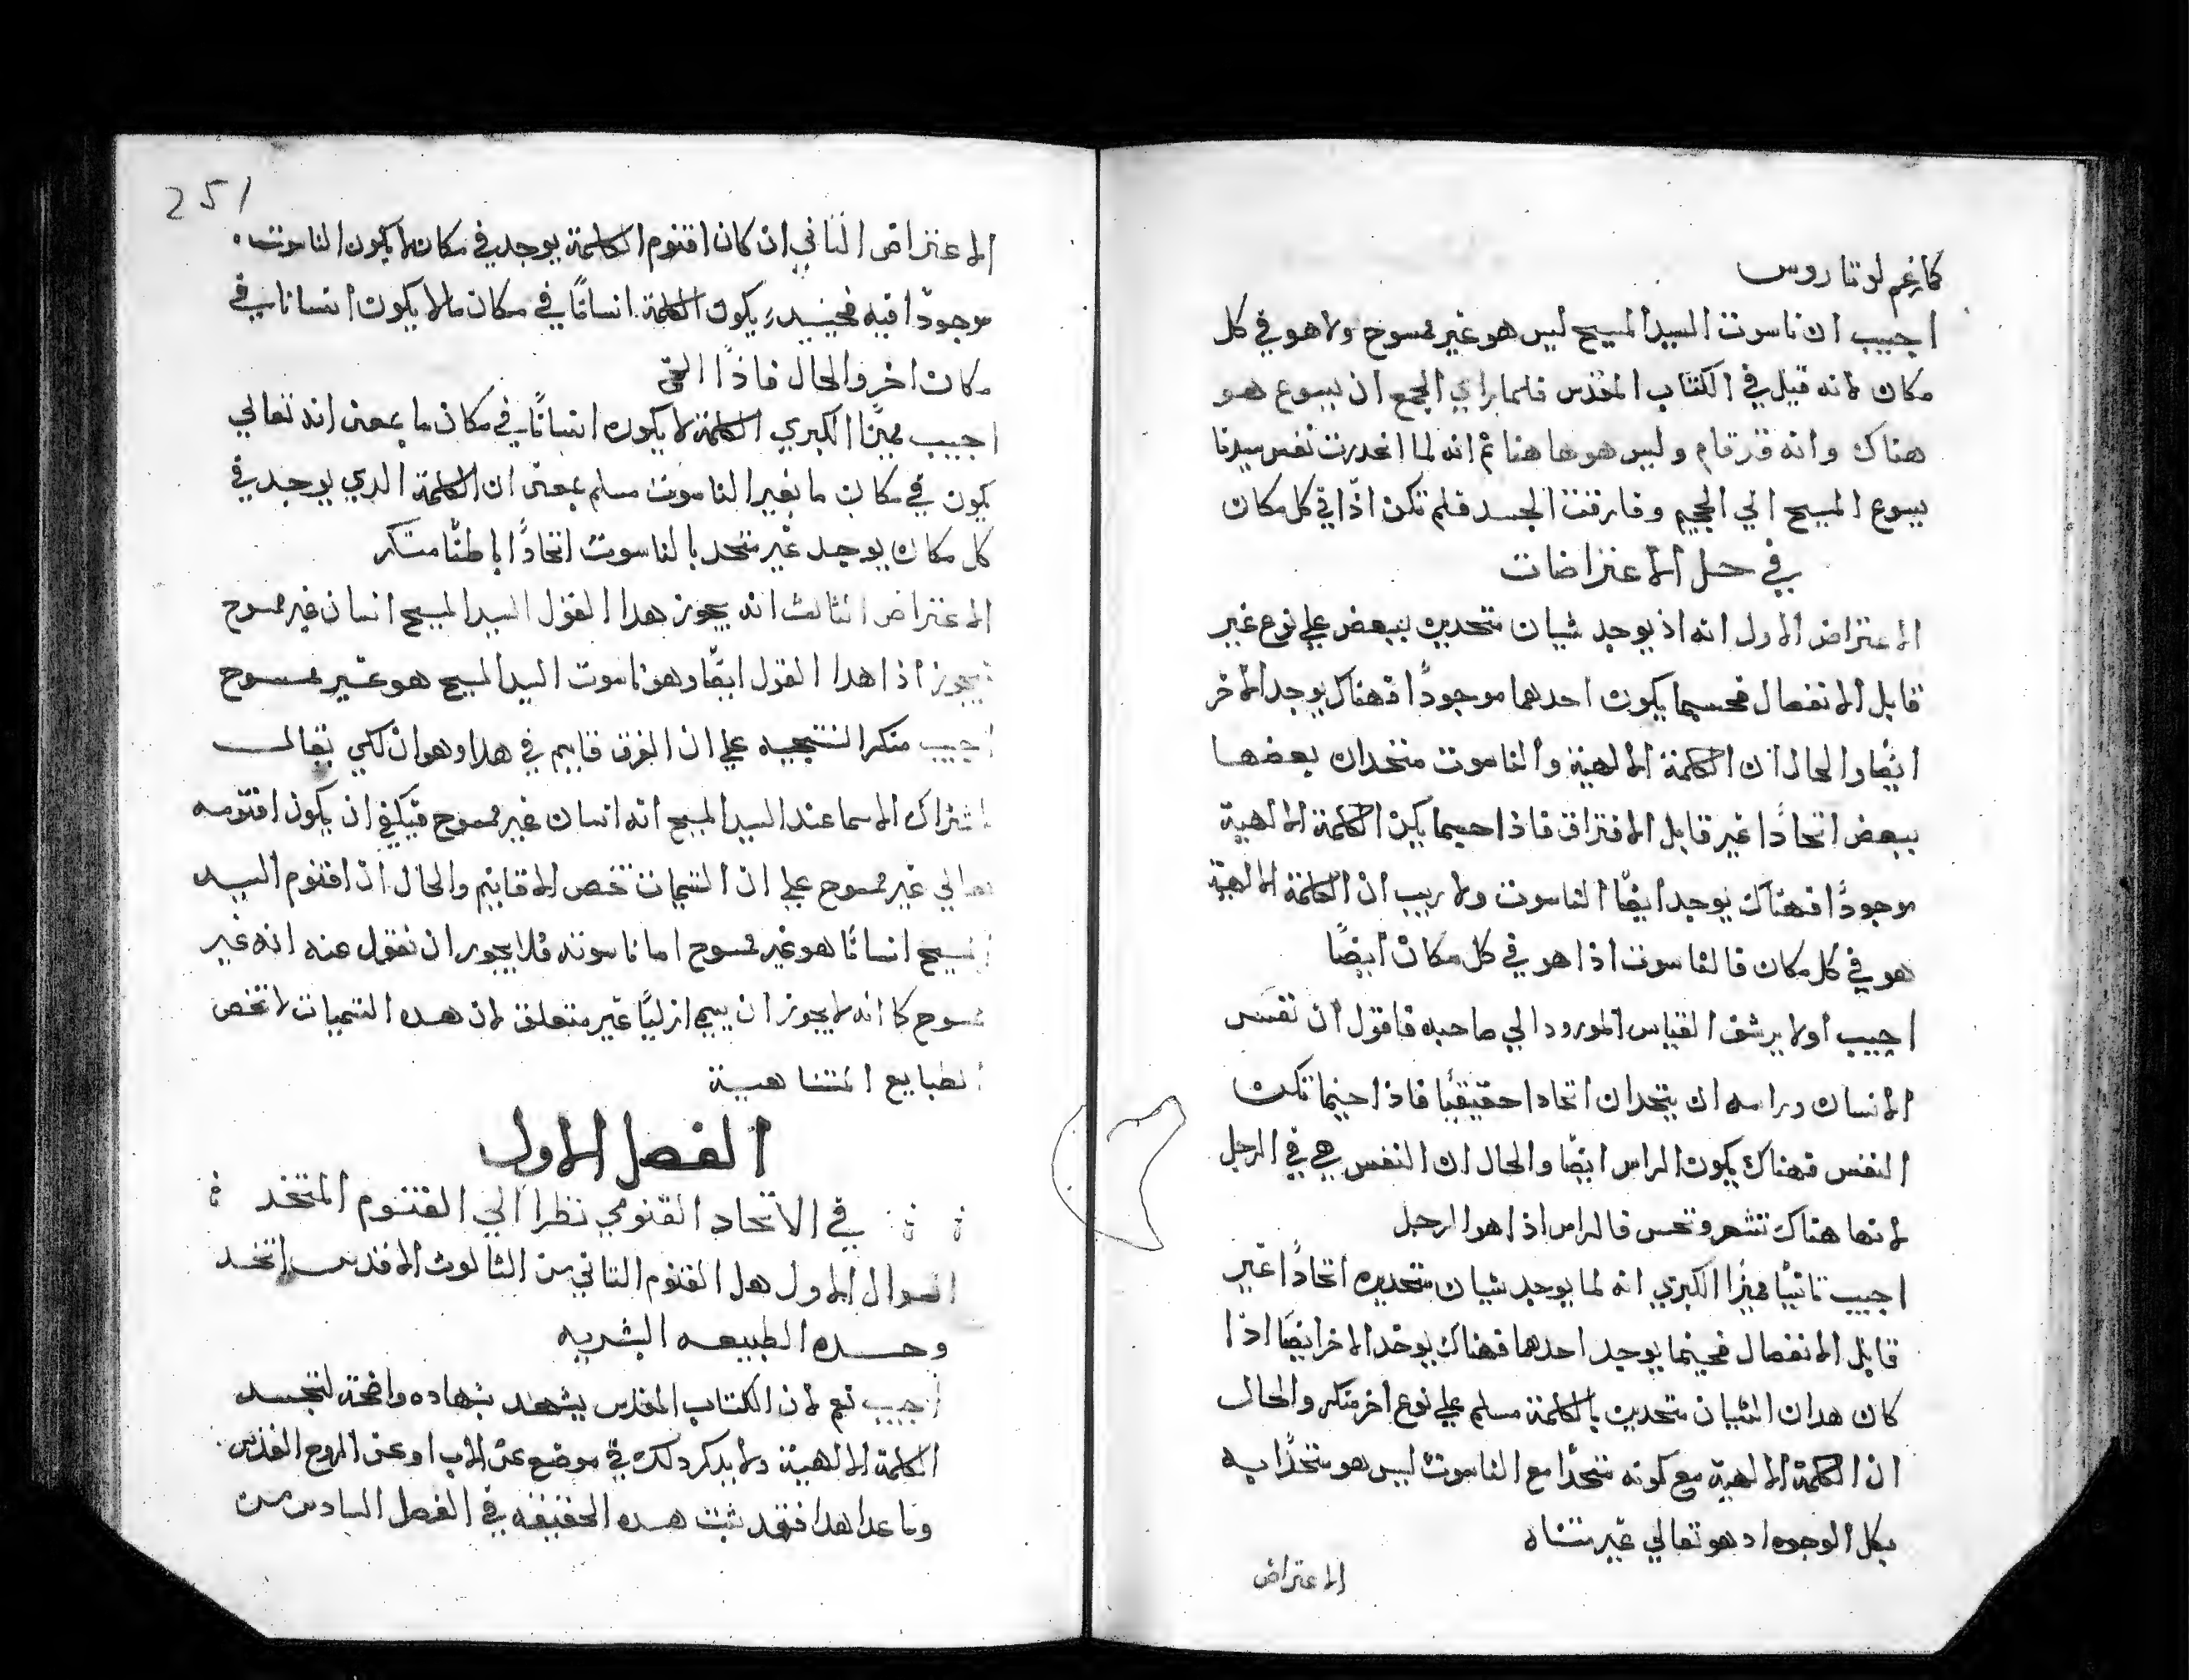 كما زعم لوتاروس
اجيب ان ناسوت السيد المسيح ليس هو غير ممسوح ولا هو في كل
مكان لانه قيل في الكتاب المقدس فلما راي الجمع ان يسوع هو
هناك وانه قد قام وليس هو هاهنا ثم انه لما انحدرت نفس سيدنا
يسوع المسيح الي الجحيم وفارقت الجسد فلم تكن اذًا في كل مكان
في حل الاعتراضات
الاعتراض الاول انه اذ يوجد شيان متحدين ببعض علي نوع غير
قابل الانفصال فحسيما يكون احدهما موجودًا فهناك يوجد الاخر
ايضًا والحال ان الكلمة الالهية والناسوت متحدان بعضها
ببعض اتحادًا غير قابل الافتراق فاذا حيما يكن الكلمة الالهية
موجودًا فهناك يوجد ايضًا الناسوت ولا ريب ان الكلمة الالهية
هو في كل مكان فالناسوت اذا هو في كل مكان ايضًا
اجيب اولا يرشق القياس المورود الي صاحبه فاقول ان نفس
الانسان وراسه ان يتحدان اتحادا حقيقيًا فاذا حينما تكن
النفس فهناك يكون الراس ايضًا والحال ان النفس هي في الرجل
لانها هناك تشعر وتحس فالراس اذا هو الرجل
اجيب ثانيًا مميزًا الكبري انه لما يوجد شيان متحدين اتحادًا غير
قابل الانفصال فحينما يوجد احدهما فهناك يوخد الاخر ايضًا اذا
كان هدان الشيان متحدين بالكلمة مسلم علي نوع اخر منكر والحال
ان الكلمة الالهية مع كونه متحدًا مع الناسوت ليس هو متحدًا به
بكل الوجوه اد هو تعالي غير متناه
الاعتراض
251
الاعتراض الثاني ان كان اقنوم الكلمة يوجد في مكان لا يكون الناسوت
موجودًا فيه فحينيد يكون الكلمة انسانًا في مكان ما لا يكون انسانا في
مكان اخر والحال فاذًا الخ
اجيب مميزًا الكبري الكلمة لا يكون انسانًا في مكان ما بمعنى انه تعالي
يكون في مكان ما بغير الناسوت مسلم بمعنى ان الكلمة الدي يوجد في
كل مكان يوجد غير متحد بالناسوت اتحادًا باطنًا منكر
الاعتراض الثالث انه يجوز هدا القول السيد المسيح انسان غير ممسوح
فيجوز اذا هدا القول ايضًا وهو ناسوت السيد المسيح هو غير ممسوح
اجيب منكرا النتيجيه علي ان الفرق قاييم في هدا وهو ان لكي يقال
اشتراك الاسما عند السيد المسيح انه انسان غير ممسوح فيكفي ان يكون اقنومه
تعالي غير ممسوح علي ان التسميات تخص الاقانيم والحال ان اقنوم السيد
المسيح انسانًا هو غير ممسوح اما ناسوته فلا يجوز ان نقول عنه انه غير
ممسوح كما انه لا يجوز ان يسمي ازليًا غير متعلق لان هده التسميات لا تخص
الطبايع المتناهية
الفصل الاول
في الاتحاد القنومي نظرا الي القنوم المتخد
السوال الاول هل القنوم التاني من الثالوث الاقدس اتخد
وحده الطبيعه البشريه
اجيب نعم لان الكتاب المقدس يشهد بشهاده واضحة لتجسد
الكلمة الالهية ولا يدكر دلك في موضع عن الاب او عن الروح القدس
وما عدا هدا فقد ثبت هده الحقيقه في الفصل السادس من